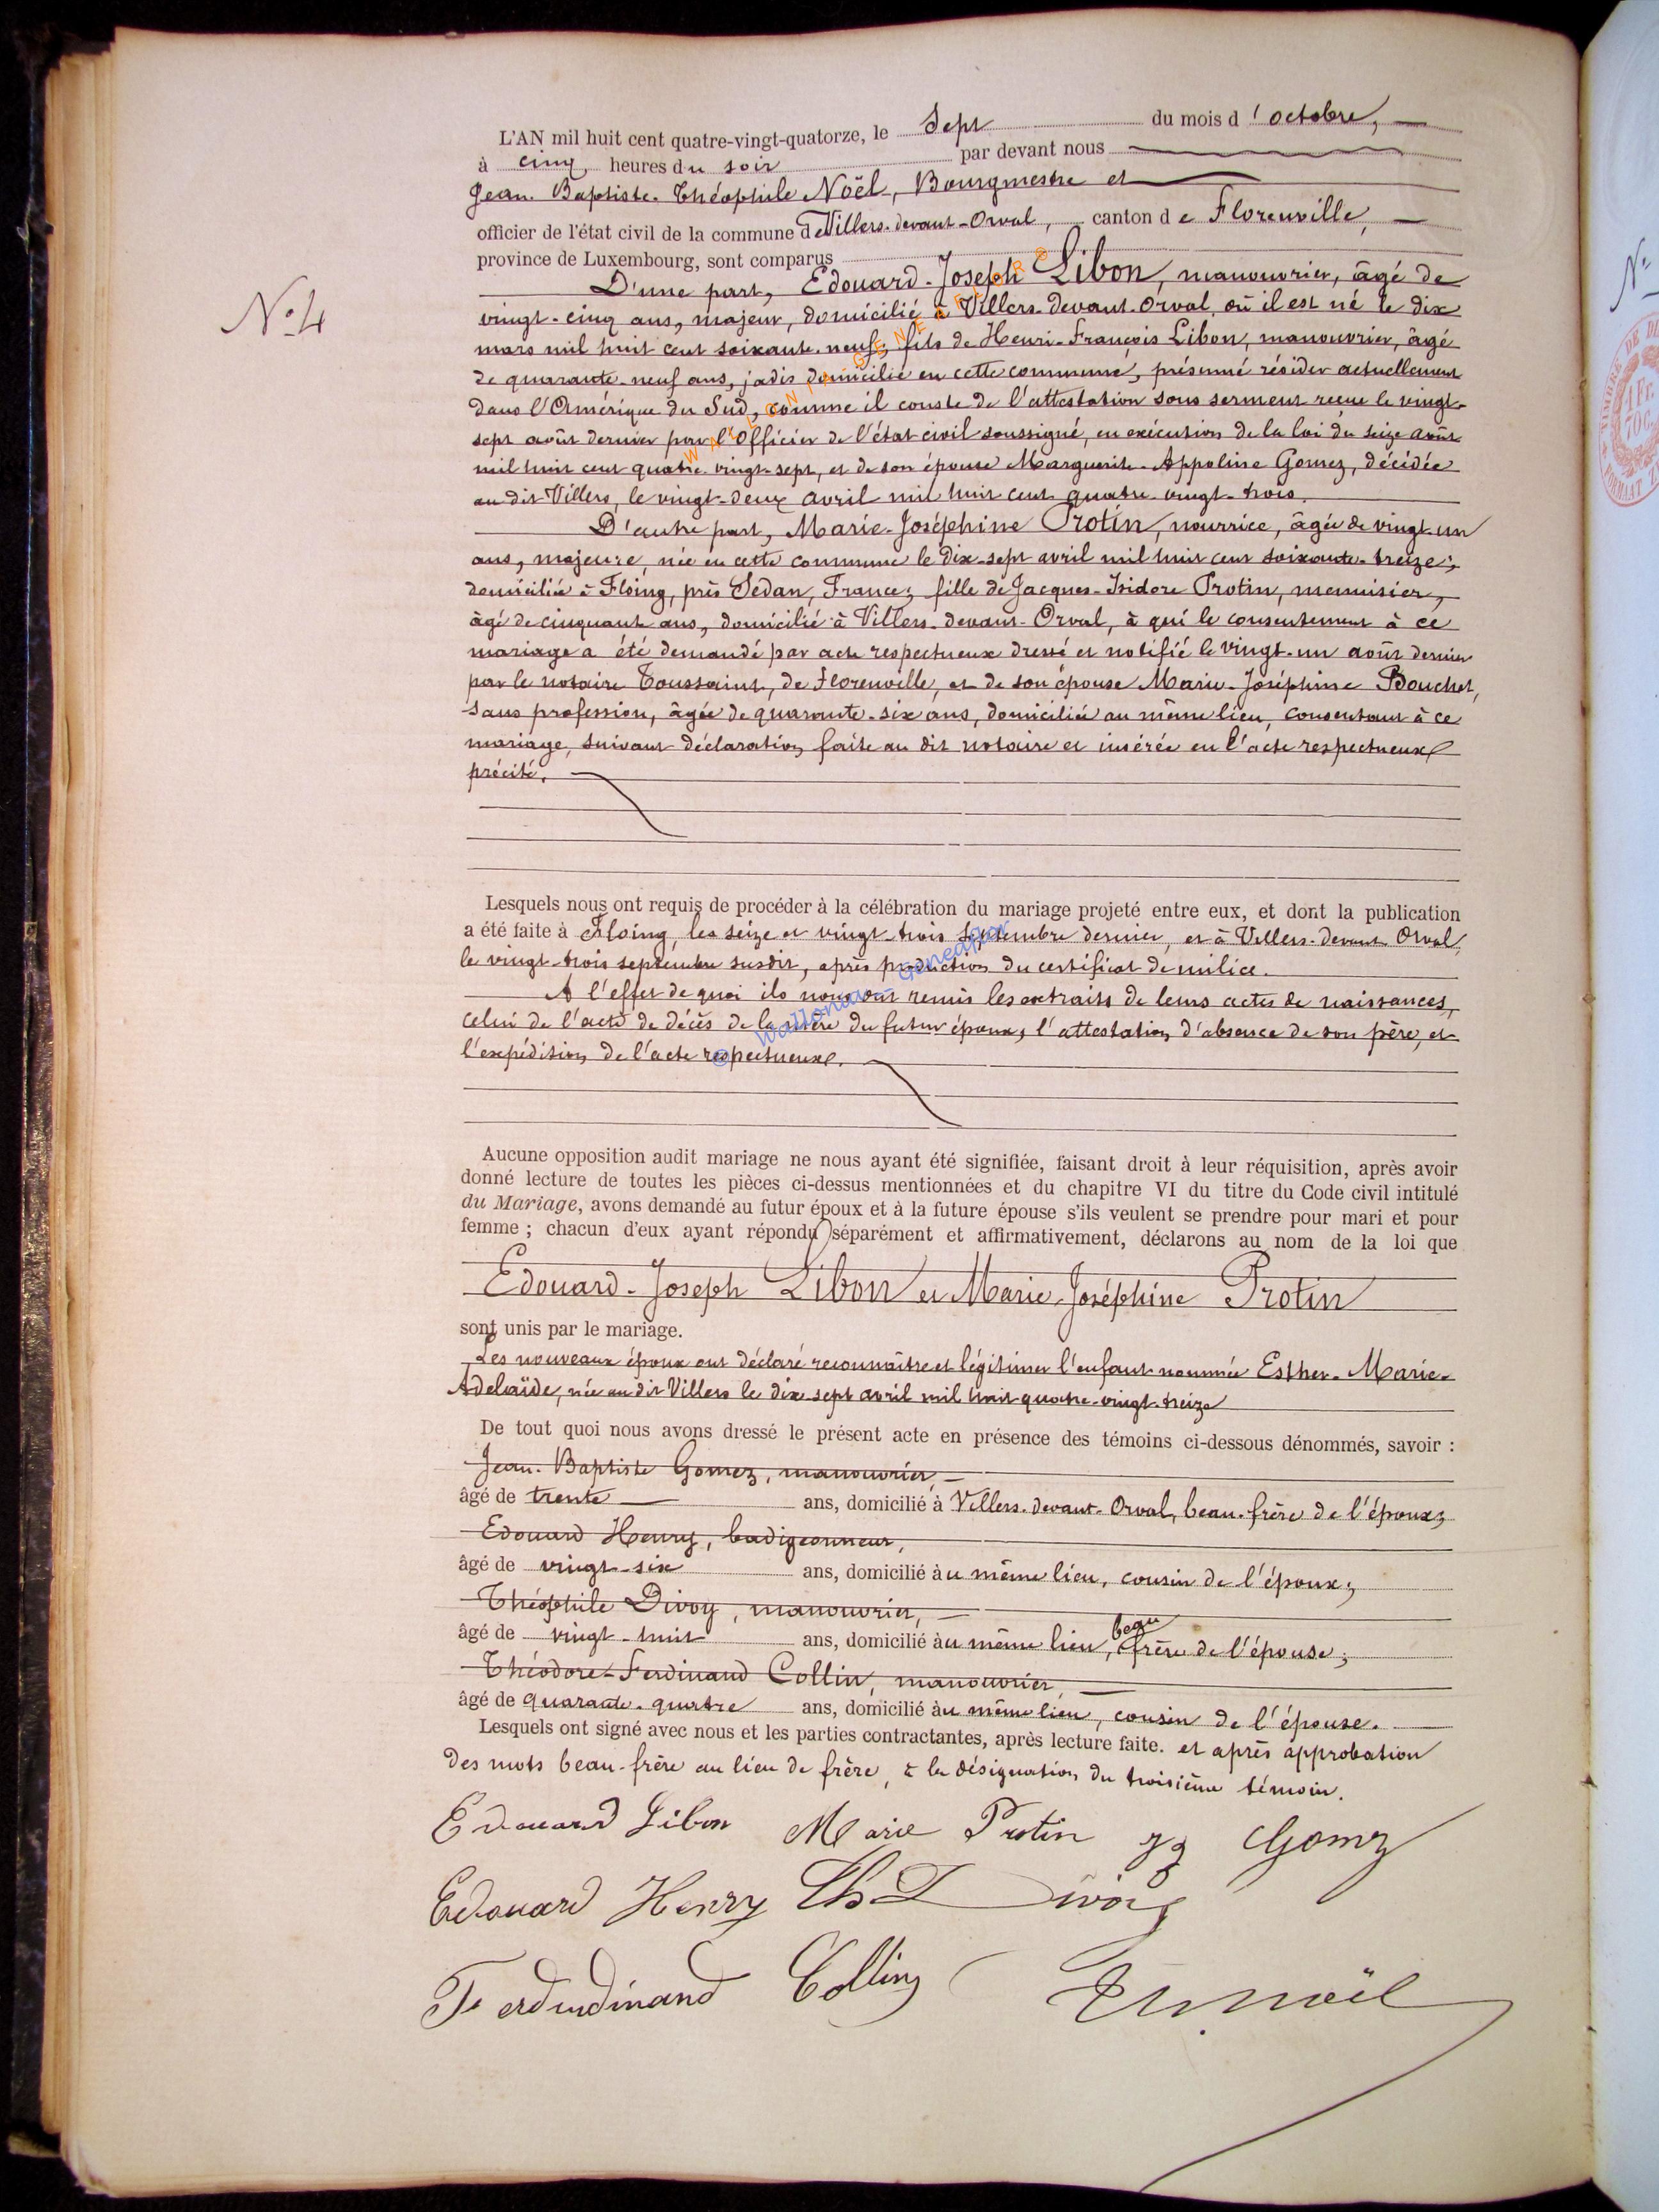 L'AN mil huit cent quatre-vingt-quatorze, le Sept du mois d'octobre,
à cinq heures du soir par devant nous
Jean-Baptiste-Théophile Noël, Bourgmestre et
officier de l'état civil de la commune de Villers-devant-Orval, canton de Florenville,
province de Luxembourg, sont comparus
N° 4
D'une part, Edouard-Joseph Libon, manouvrier, âgé de
vingt-cinq ans, majeur, domicilié à Villers-devant-Orval, où il est né le dix
mars mil huit cent soixante-neuf; fils de Henri-François Libon, manouvrier, âgé
de quarante-neuf ans, jadis domicilié en cette commune, présumé résider actuellement
dans l'Amérique du Sud, comme il conste de l'attestation sous serment reçue le vingt-
sept août dernier par l'Officier de l'état civil soussigné, en exécution de la loi du seize août
mil huit cent quatre-vingt-sept, et de son épouse Marguerite-Appoline Gomez, décédée
au dit Villers, le vingt-deux avril mil huit cent quatre-vingt-trois.
D'autre part, Marie-Joséphine Protin, nourrice, âgée de vingt-un
ans, majeure, née en cette commune le dix-sept avril mil huit cent soixante-treize;
domiciliée à Floing, près Sedan, France; fille de Jacques-Isidore Protin, menuisier,
âgé de cinquante ans, domicilié à Villers-devant-Orval, à qui le consentement à ce
mariage a été demandé par acte respectueux dressé et notifié le vingt-un août dernier
par le notaire Toussaint, de Florenville, et de son épouse Marie-Joséphine Bouchet,
sans profession, âgée de quarante-six ans, domiciliée au même lieu, consentant à ce
mariage, suivant déclaration faite au dit notaire et insérée en l'acte respectueux
précité.
Lesquels nous ont requis de procéder à la célébration du mariage projeté entre eux, et dont la publication
a été faite à Floing, les seize et vingt-trois septembre dernier, et à Villers-devant-Orval,
le vingt-trois septembre susdit, après production du certificat de milice.
A l'effet de quoi ils nous ont remis les extraits de leurs actes de naissances,
celui de l'acte de décès de la mère du futur époux, l'attestation d'absence de son père, et
l'expédition de l'acte respectueux.
Aucune opposition audit mariage ne nous ayant été signifiée, faisant droit à leur réquisition, après avoir
donné lecture de toutes les pièces ci-dessus mentionnées et du chapitre VI du titre du Code civil intitulé
du Mariage, avons demandé au futur époux et à la future épouse s'ils veulent se prendre pour mari et pour
femme ; chacun d'eux ayant répondu séparément et affirmativement, déclarons au nom de la loi que
Edouard-Joseph Libon et Marie-Joséphine Protin
sont unis par le mariage.
Les nouveaux époux ont déclaré reconnaître et légitimer l'enfant nommée Esther-Marie-
Adelaïde, née au dit Villers le dix-sept avril mil huit quatre-vingt-treize
De tout quoi nous avons dressé le présent acte en présence des témoins ci-dessous dénommés, savoir :
Jean-Baptiste Gomez, manouvrier,
âgé de trente ans, domicilié à Villers-devant-Orval, beau-frère de l'époux;
Edouard Henry, badigeonneur,
âgé de vingt-six ans, domicilié au même lieu, cousin de l'époux;
Théophile Divoy, manouvrier,
âgé de vingt-huit ans, domicilié au même lieu, beau frère de l'épouse;
Théodore-Ferdinand Collin, manouvrier,
âgé de quarante-quatre ans, domicilié au même lieu, cousin de l'épouse.
Lesquels ont signé avec nous et les parties contractantes, après lecture faite. et après approbation
des mots beau-frère au lieu de frère, à la désignation du troisième témoin.
Edouard Libon Marie Protin Gomez
Edouard Henry Th D Divoy
Ferdindinand Collin Th. Noël